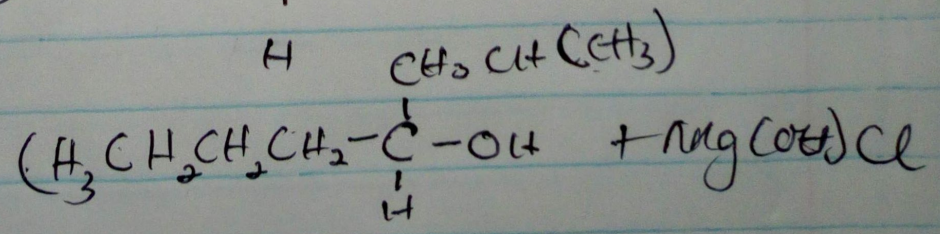 H
CH₂ CH (CH₃)
CH₃CH₂CH₂CH₂-C-OH + Mg(OH)Cl
H